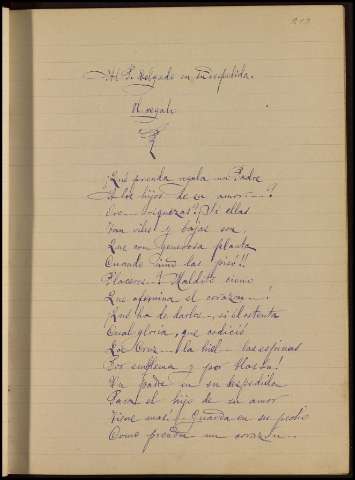 Al P. Delgado en su despedida.
Un regalo
¿Qué prenda regala un Padre
A los hijos de su amor...?
Oro.. riquezas? Si ellas
Tan viles y bajas son
Que con generosa planta
Cuando niño las pisó!!
Placeres..? Maldito cieno
Que afemina el corazón..!
¿Qué ha de darles, si él ostenta
Cual gloria, que codició
La Cruz.. la hiel.. las espinas
Por emblema y por blasón!
Un padre en su despedida
Para el hijo de su amor
Tiene mas! Guarda en su pecho
Como prenda un corazón..